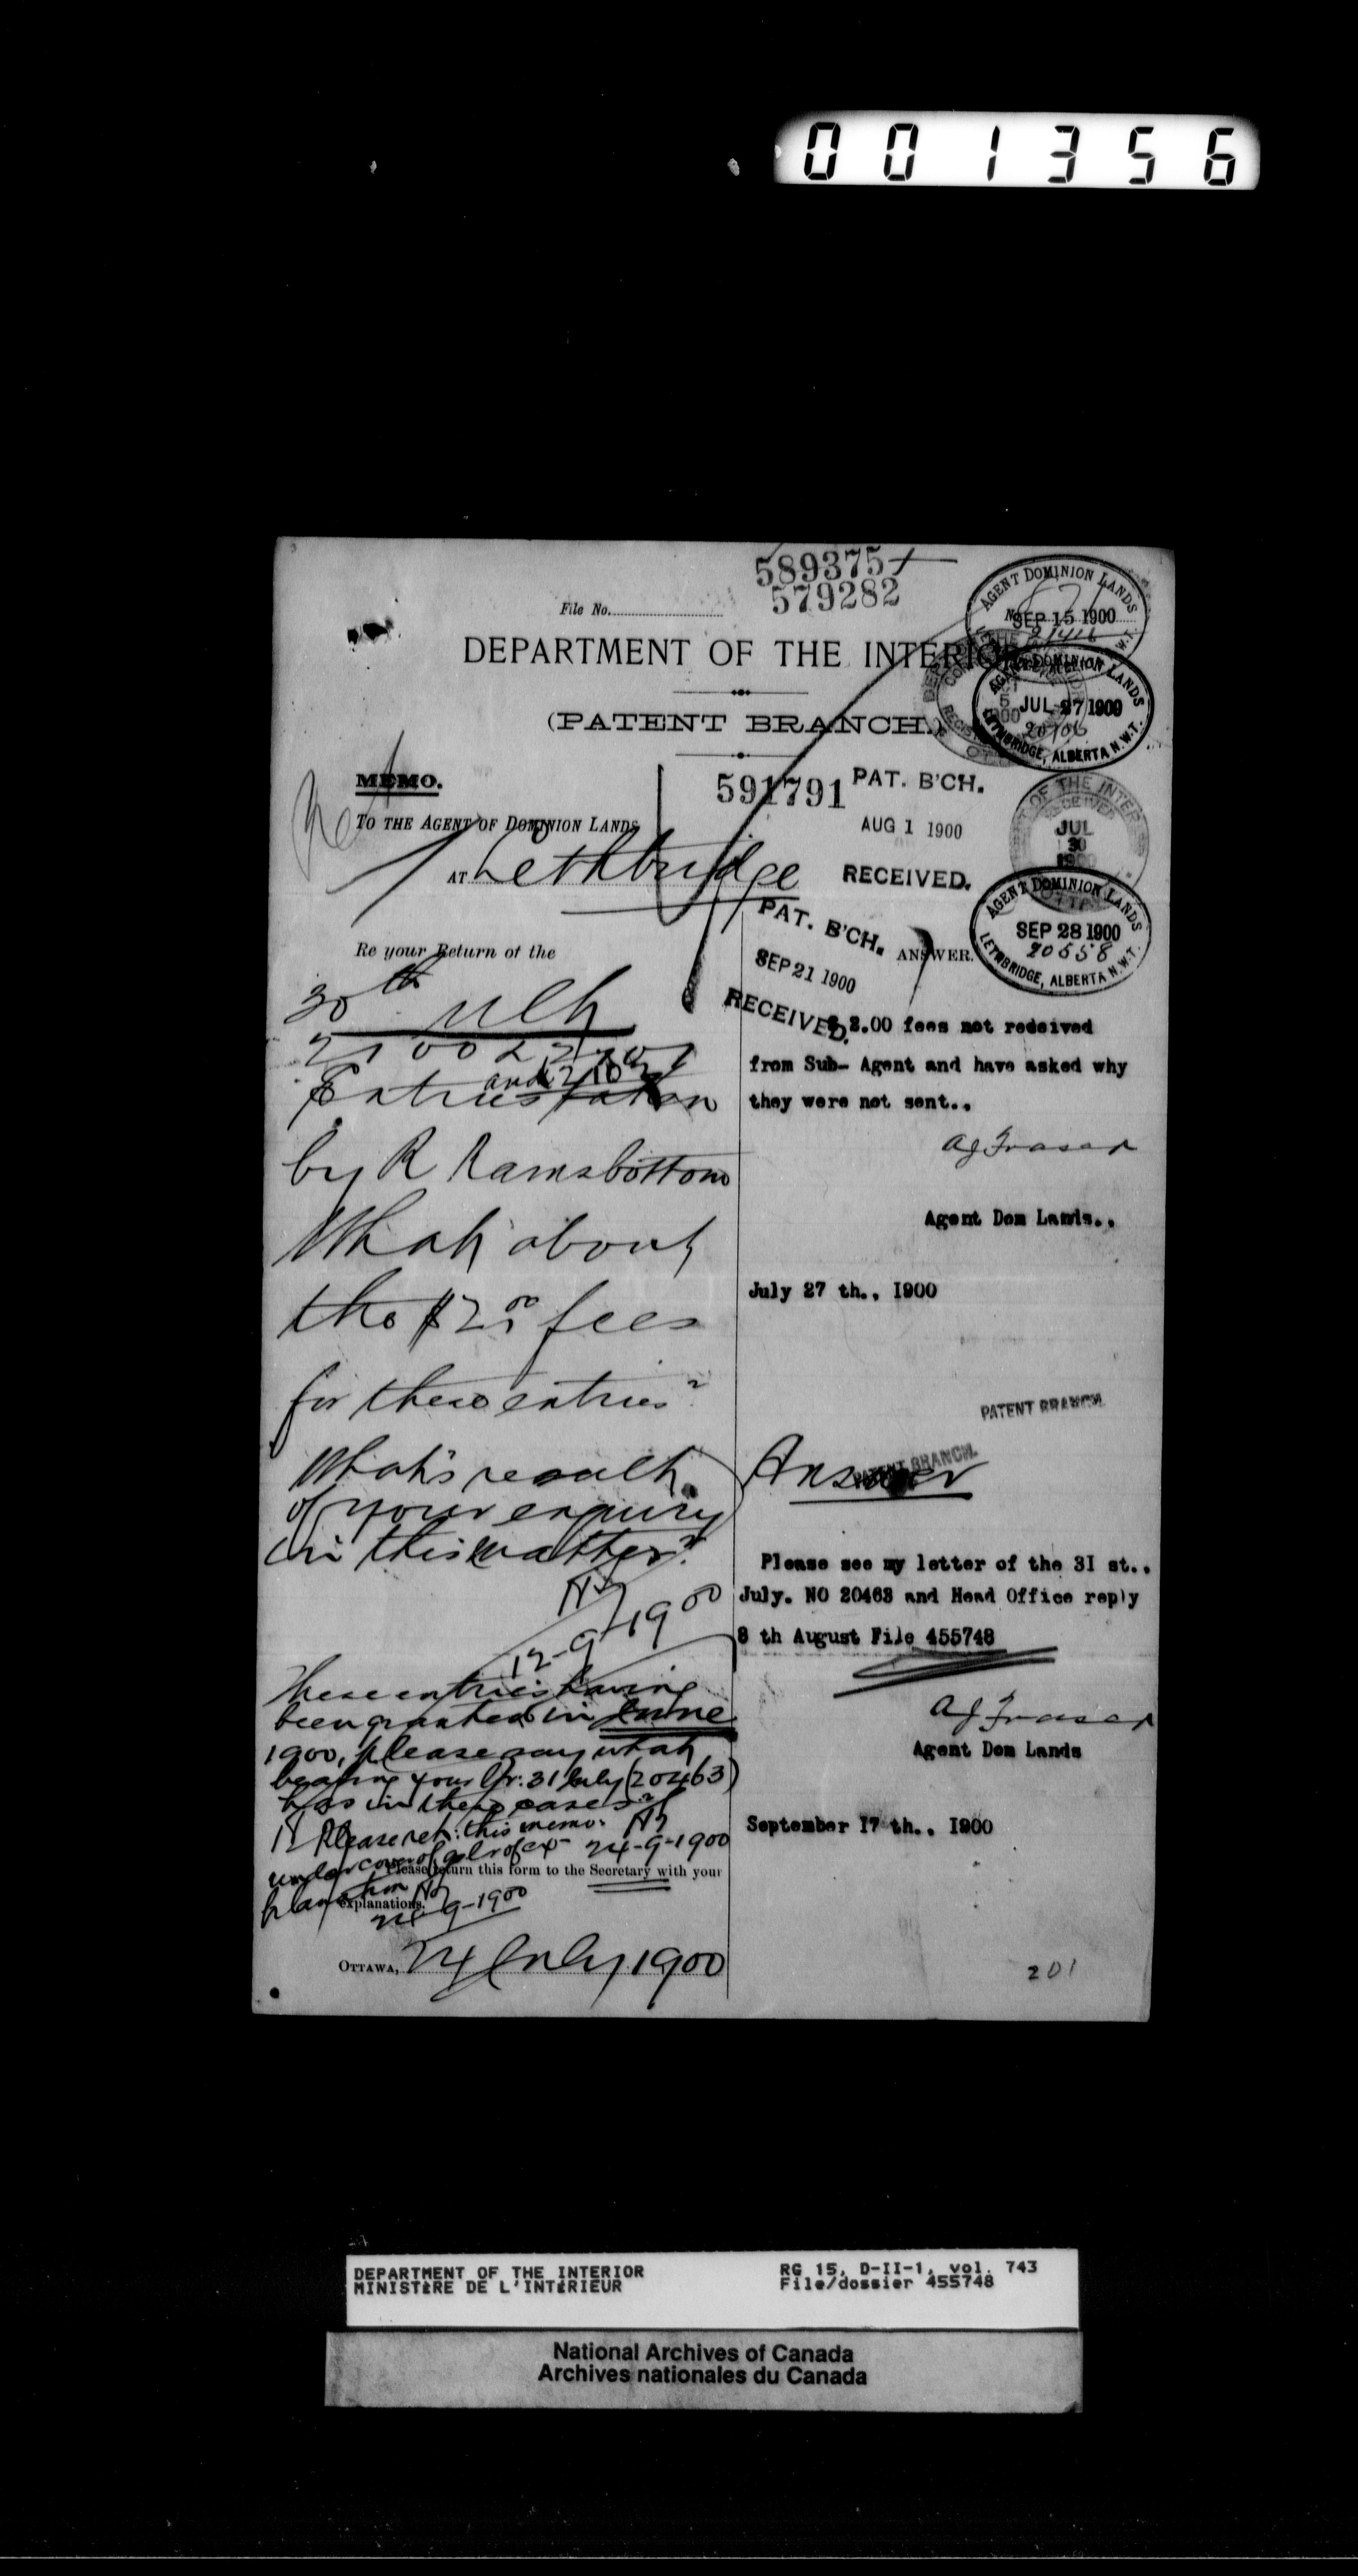 001356
589375
579282
File No.
DEPARTMENT OF THE INTERIOR
(PATENT BRANCH.)
AGENT DOMINION LANDS
SEP 15 1900
AGENT DOMINION LANDS
JUL 27 1900
LETHBRIDGE, ALBERTA N.W.T.
MEMO.
591791
PAT. B'CH.
AUG 1 1900
RECEIVED.
OF THE INTER
RECEIVED
JUL
30
1900
TO THE AGENT OF DOMINION LANDS
AT Lethbridge
AGENT DOMINION LANDS
SEP 28 1900
20558
LETHBRIDGE, ALBERTA N.W.T.
PAT. B'CH.
SEP 21 1900
RECEIVED.
Re your Return of the
30th ult
and 2102
Entries taken
by R Ramsbottom
What about
the $2.00 fees
for these entries?
What's result
of your enquiry
in this matter?
12-9-1900
These entries having
been granted in June
1900, please say what
bearing your lr. 31 July (20463)
has in these cases?
Please ret. this memo.
24-9-1900
under cover of
Please return this form to the Secretary with your
explanations.
24-9-1900
OTTAWA, 24 July 1900
ANSWER.
$ 2.00 fees not received
from Sub- Agent and have asked why
they were not sent..
AJ Fraser
Agent Dom Lands..
July 27 th., I900
PATENT BRANCH.
PATENT BRANCH.
Answer
Please see my letter of the 3I st..
July. NO 20463 and Head Office reply
8 th August File 455748
AJ Fraser
Agent Dom Lands
September I7 th.. I900
201
DEPARTMENT OF THE INTERIOR
MINISTÈRE DE L'INTÉRIEUR
RG 15, D-II-1, vol. 743
File/dossier 455748
National Archives of Canada
Archives nationales du Canada